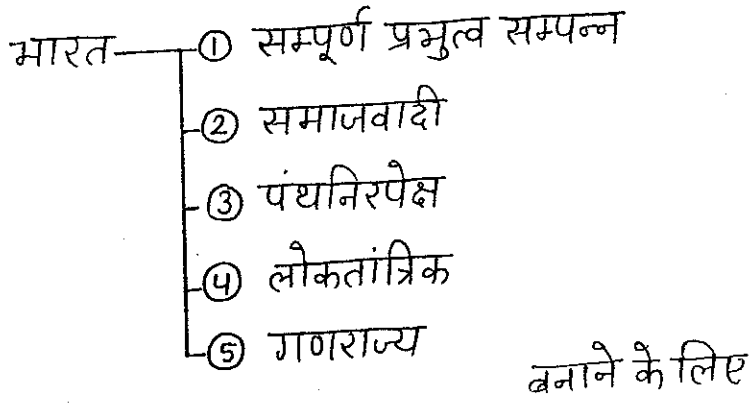 भारत ① सम्पूर्ण प्रभुत्व सम्पन्न
② समाजवादी
③ पंथनिरपेक्ष
④ लोकतांत्रिक
⑤ गणराज्य
बनाने के लिए